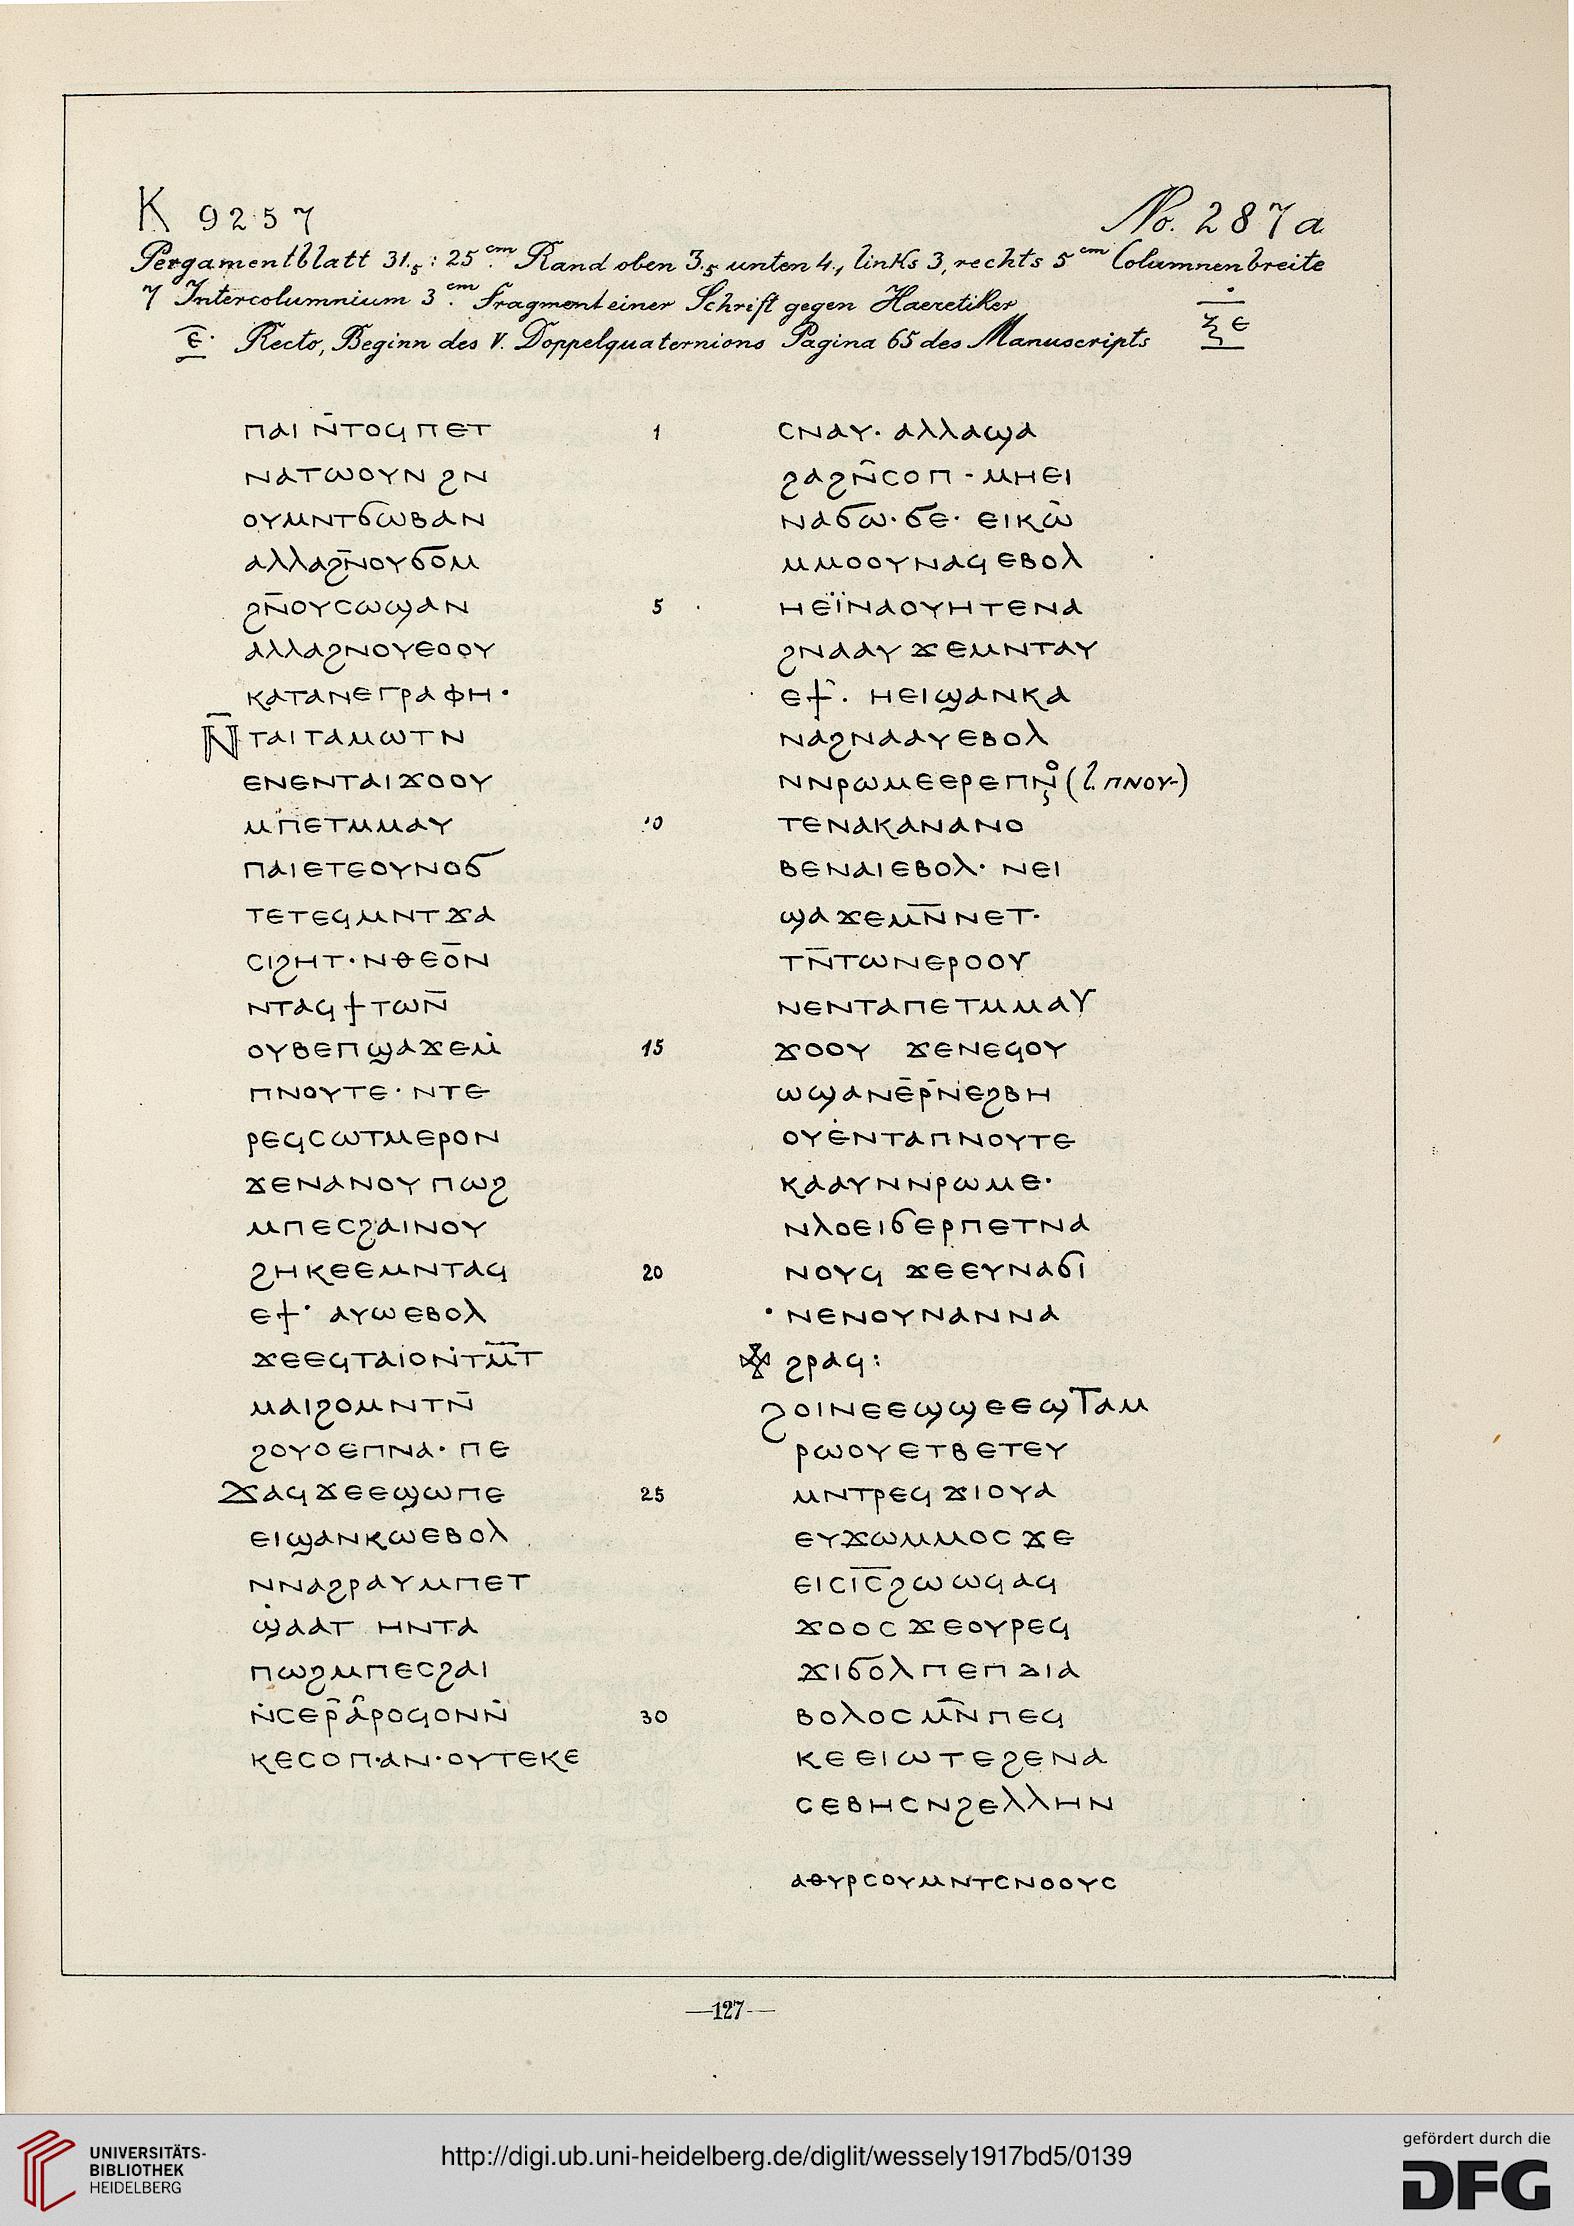 K 9257
No. 287a
Pergamentblatt 31.5 : 25 cm. Rand oben 3.5 unten 4., links 3, rechts 5 cm Columnenbreite
7 Intercolumnium 3 cm. Fragment einer Schrift gegen Haeretiker
ⲉ̅· Recto, Beginn des V. Doppelquaternions Pagina 65 des Manuscripts
ⲝⲉ
ⲡⲁⲓ ⲛ̄ⲧⲟϥ ⲡⲉⲧ
ⲛⲁⲧⲱⲟⲩⲛ ϩⲛ
ⲟⲩⲙⲛⲧϭⲱⲃⲁⲛ
ⲁⲗⲗⲁϩⲛ̄ⲟⲩϭⲟⲙ
ϩⲛ̄ⲟⲩⲥⲱϣⲁⲛ
ⲁⲗⲗⲁϩⲛⲟⲩⲉⲟⲟⲩ
ⲕⲁⲧⲁⲛⲉⲅⲣⲁⲫⲏ·
ⲛ̄ⲧⲁⲓⲧⲁⲙⲱⲧⲛ
ⲉⲛⲉⲛⲧⲁⲓϫⲟⲟⲩ
ⲙⲡⲉⲧⲙⲙⲁⲩ
ⲡⲁⲓⲉⲧⲉⲟⲩⲛⲟϭ
ⲧⲉⲧⲉϥⲙⲛⲧϫⲁ
ⲥⲓϩⲏⲧ·ⲛⲑⲉⲟ̄ⲛ
ⲛⲧⲁϥϯⲧⲱⲛ̄
ⲟⲩⲃⲉⲡϣⲁϫⲉⲙ̇
ⲡⲛⲟⲩⲧⲉ·ⲛⲧⲉ
ⲣⲉϥⲥⲱⲧⲙⲉⲣⲟⲛ
ϫⲉⲛⲁⲛⲟⲩ ⲡⲱϩ
ⲙⲡⲉⲥϩⲁⲓⲛⲟⲩ
ϩⲏⲕⲉⲉⲙⲛⲧⲁϥ
ⲉϯ· ⲁⲩⲱ ⲉⲃⲟⲗ
ϫⲉⲉϥⲧⲁⲓⲟⲛ̇ⲧⲙ̅ⲧ̅
ⲙⲁⲓϩⲟⲙⲛⲧⲛ̄
ϩⲟⲩⲟⲉⲡⲛⲁ· ⲡⲉ
ϫⲁϥϫⲉⲉϣⲱⲡⲉ
ⲉⲓϣⲁⲛⲕⲱⲉⲃⲟⲗ
ⲛⲛⲁϩⲣⲁⲩⲙⲡⲉⲧ
ϣ̇ⲁⲁⲧ ⲏⲛⲧⲁ
ⲡⲱϩⲙⲡⲉⲥϩⲁⲓ
ⲛ̇ⲥⲉⲣ̄ⲁ̂ⲣⲟϥⲟⲛⲛ̇
ⲕⲉⲥⲟⲡ·ⲁⲛ·ⲟⲩⲧⲉⲕⲉ
1
5
10
15
20
25
30
ⲥⲛⲁⲩ· ⲁⲗⲗⲁϣⲁ
ϩⲁϩⲛ̄ⲥⲟⲡ · ⲙⲏⲉⲓ
ⲛⲁϭⲱ·ϭⲉ· ⲉⲓⲕⲱ̇
ⲙⲙⲟⲟⲩⲛⲁϥⲉⲃⲟⲗ
ⲏⲉⲓ̈ⲛⲁⲟⲩⲏⲧⲉⲛⲁ
ϩⲛⲁⲁⲩ ϫⲉⲙⲛⲧⲁⲩ
ⲉϯ· ⲏⲉⲓϣⲁⲛⲕⲁ
ⲛⲁϩⲛⲁⲁⲩⲉⲃⲟⲗ
ⲛⲛⲣⲱⲙⲉⲉⲣⲉⲡⲛⲟ (l. ⲡⲛⲟⲩ-)
ⲧⲉⲛⲁⲕⲁⲛⲁⲛⲟ
ⲃⲉⲛⲁⲓⲉⲃⲟⲗ· ⲛⲉⲓ
ϣⲁϫⲉⲙ̅ⲛ̅ⲛⲉⲧ·
ⲧⲛ̅ⲧⲱⲛⲉⲣⲟⲟⲩ
ⲛⲉⲛⲧⲁⲡⲉⲧⲙⲙⲁⲩ
ϫⲟⲟⲩ ϫⲉⲛⲉϥⲟⲩ
ⲱϣⲁⲛⲉ̄ⲣ̄ⲛⲉϩⲃⲏ
ⲟⲩⲉ̇ⲛⲧⲁⲡⲛⲟⲩⲧⲉ
ⲕⲁⲁⲩⲛⲛⲣⲱⲙⲉ·
ⲛⲗⲟⲉⲓϭⲉⲣⲡⲉⲧⲛⲁ
ⲛⲟⲩϥ ϫⲉⲉⲩⲛⲁϭⲓ
·ⲛⲉⲛⲟⲩⲛⲁⲛⲛⲁ
ϩⲣⲁϥ:
ϩⲟⲓⲛⲉⲉϣϣⲉⲉϣⲧⲁⲙ
ⲣⲱⲟⲩⲉⲧⲃⲉⲧⲉⲩ
ⲙⲛⲧⲣⲉϥϫⲓⲟⲩⲁ
ⲉⲩϫⲱⲙⲙⲟⲥ ϫⲉ
ⲉⲓⲥⲓ̅ⲥ̅ϩⲱⲱϥⲁϥ
ϫⲟⲟⲥ ϫⲉⲟⲩⲣⲉϥ
ϫⲓϭⲟⲗⲡⲉⲡⲇⲓⲁ
ⲃⲟⲗⲟⲥⲙ̅ⲛ̅ⲡⲉϥ
ⲕⲉⲉⲓⲱⲧⲉϩⲉⲛⲁ
ⲥⲉⲃⲏⲥⲛϩⲉⲗⲗⲏⲛ
ⲁⲑⲩⲣⲥⲟⲩⲙⲛⲧⲥⲛⲟⲟⲩⲥ
—127—
UNIVERSITÄTS-
BIBLIOTHEK
HEIDELBERG
http://digi.ub.uni-heidelberg.de/diglit/wessely1917bd5/0139
gefördert durch die
DFG